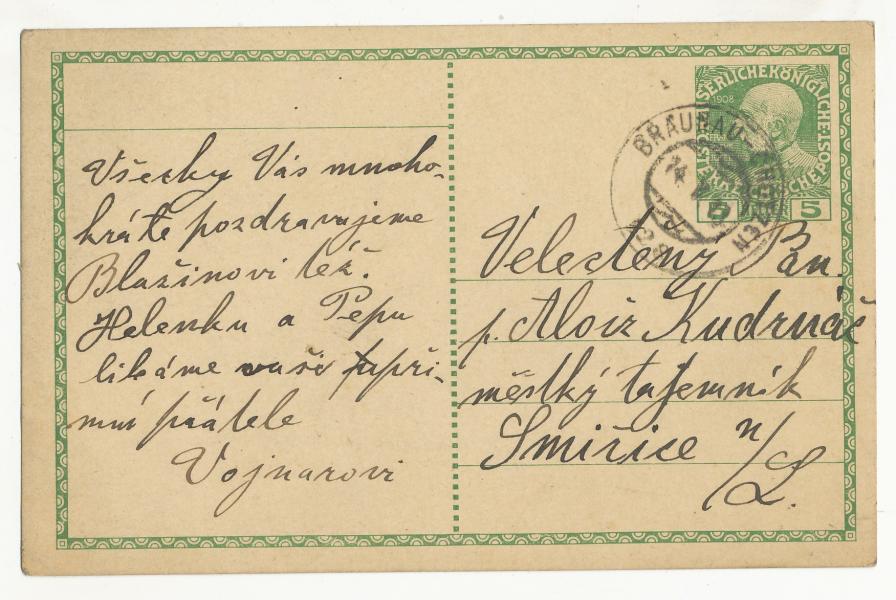 Všecky Vás mnoho-
kráte pozdravujeme
Blažinovi též.
Helenku a Pepu
libáme vaši
upří-
mní přátele
Vojnarovi
SERLICHEKÖNIGLICHE
1908
5 5
BRAUNAU
Velectěný Pan.
p. Alois Kudrnáč
městký tajemník
Smiřice n/L.